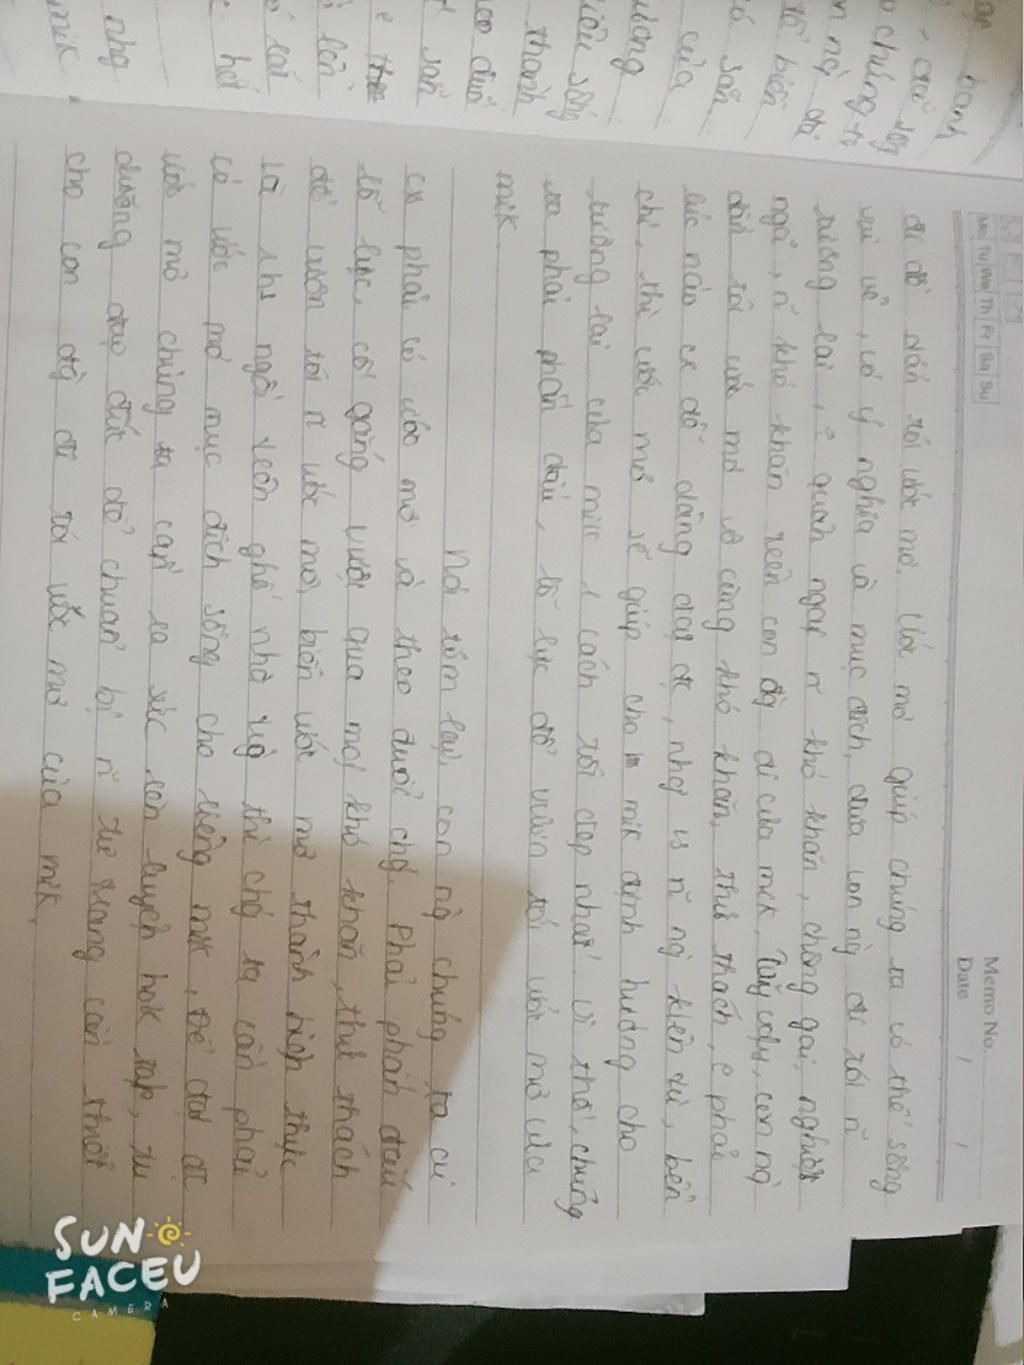 Memo No.
Date / /
Mo Tu We Th Fr Sa Su
đc để dẫn tới ước mơ. Ước mơ giúp chúng ta có thể sống
vui vẻ, có ý nghĩa và mục đích, đưa con ng đi tới n~
tương lai, quản ngại n~ khó khăn, chông gai, nghiệt
ngã, n~ khó khăn trên con đg đi của mik. Tuy vậy, con ng
dẫn tới ước mơ vô cùng khó khăn, thử thách, c phải
lúc nào cx dễ dàng đạt đc, nhg vs n~ ng kiên trì, bền
chí, thì ước mơ sẽ giúp cho mik định hướng cho
tương lai của mik 1 cách tốt đẹp nhất. Vì thế, chúng
ta phải phấn đấu, lỗ lực để vươn tới ước mơ của
mik.
Nói tóm lại, con ng chúng ta ai
cx phải có ước mơ và theo đuổi chg. Phải phấn đấu
lỗ lực, cố gắng vượt qua mọi khó khăn, thử thách
để vươn tới n~ ước mơ, biến ước mơ thành hiện thực
Là 1 hs ngồi trên ghế nhà trg thì chg ta cần phải
có ước mơ mục đích sống cho riêng mik, để đạt đc
ước mơ chúng ta cần ra sức rèn luyện hok tập, tu
dưỡng đạo đức để chuẩn bị n~ tư trang cần thiết
cho con đg đi tới ước mơ của mik.
SUN
FACEU
CAMERA